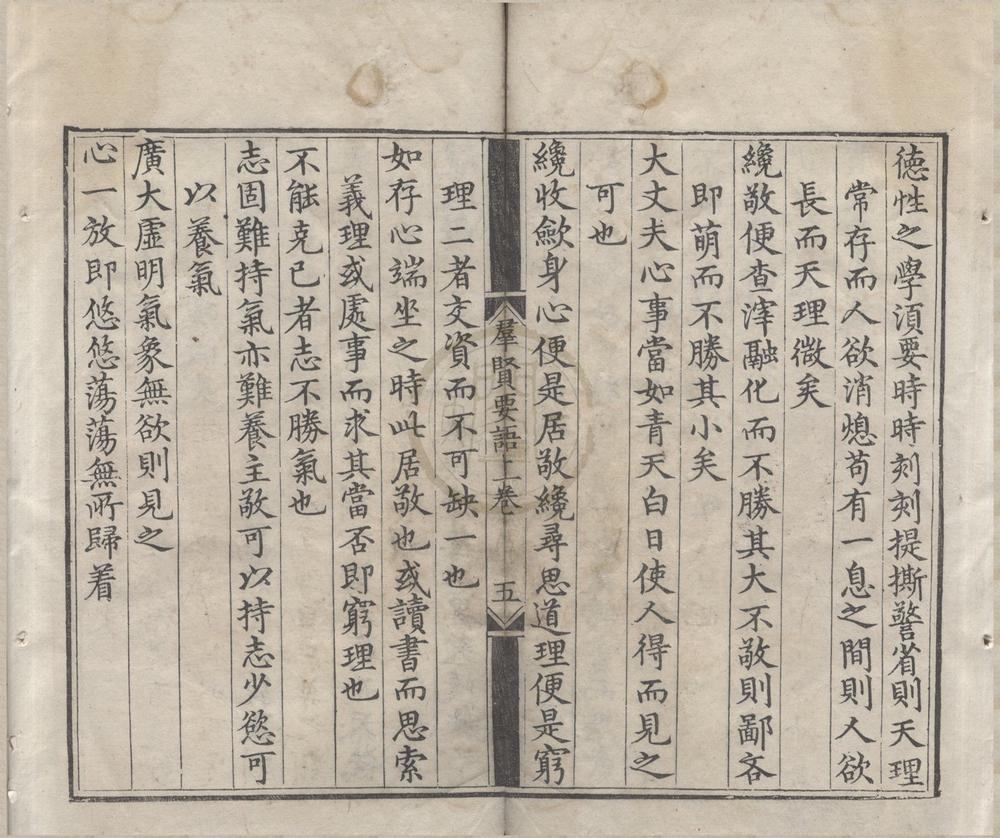 德性之學湏要時時刻刻提撕警省則天理
常存而人欲消熄苟有一息之間則人欲
長而天理微矣
纔敬便查滓融化而不勝其大不敬則鄙吝
即萌而不勝其小矣
大丈夫心事當如青天白日使人得而見之
可也
纔收歛身心便是居敬纔尋思道理便是窮
羣賢要語上卷 五
理二者交資而不可缺一也
如存心端坐之時此居敬也或讀書而思索
義理或處事而求其當否即窮理也
不能克己者志不勝氣也
志固難持氣亦難養主敬可以持志少慾可
以養氣
廣大虛明氣象無欲則見之
心一放即悠悠蕩蕩無所歸着